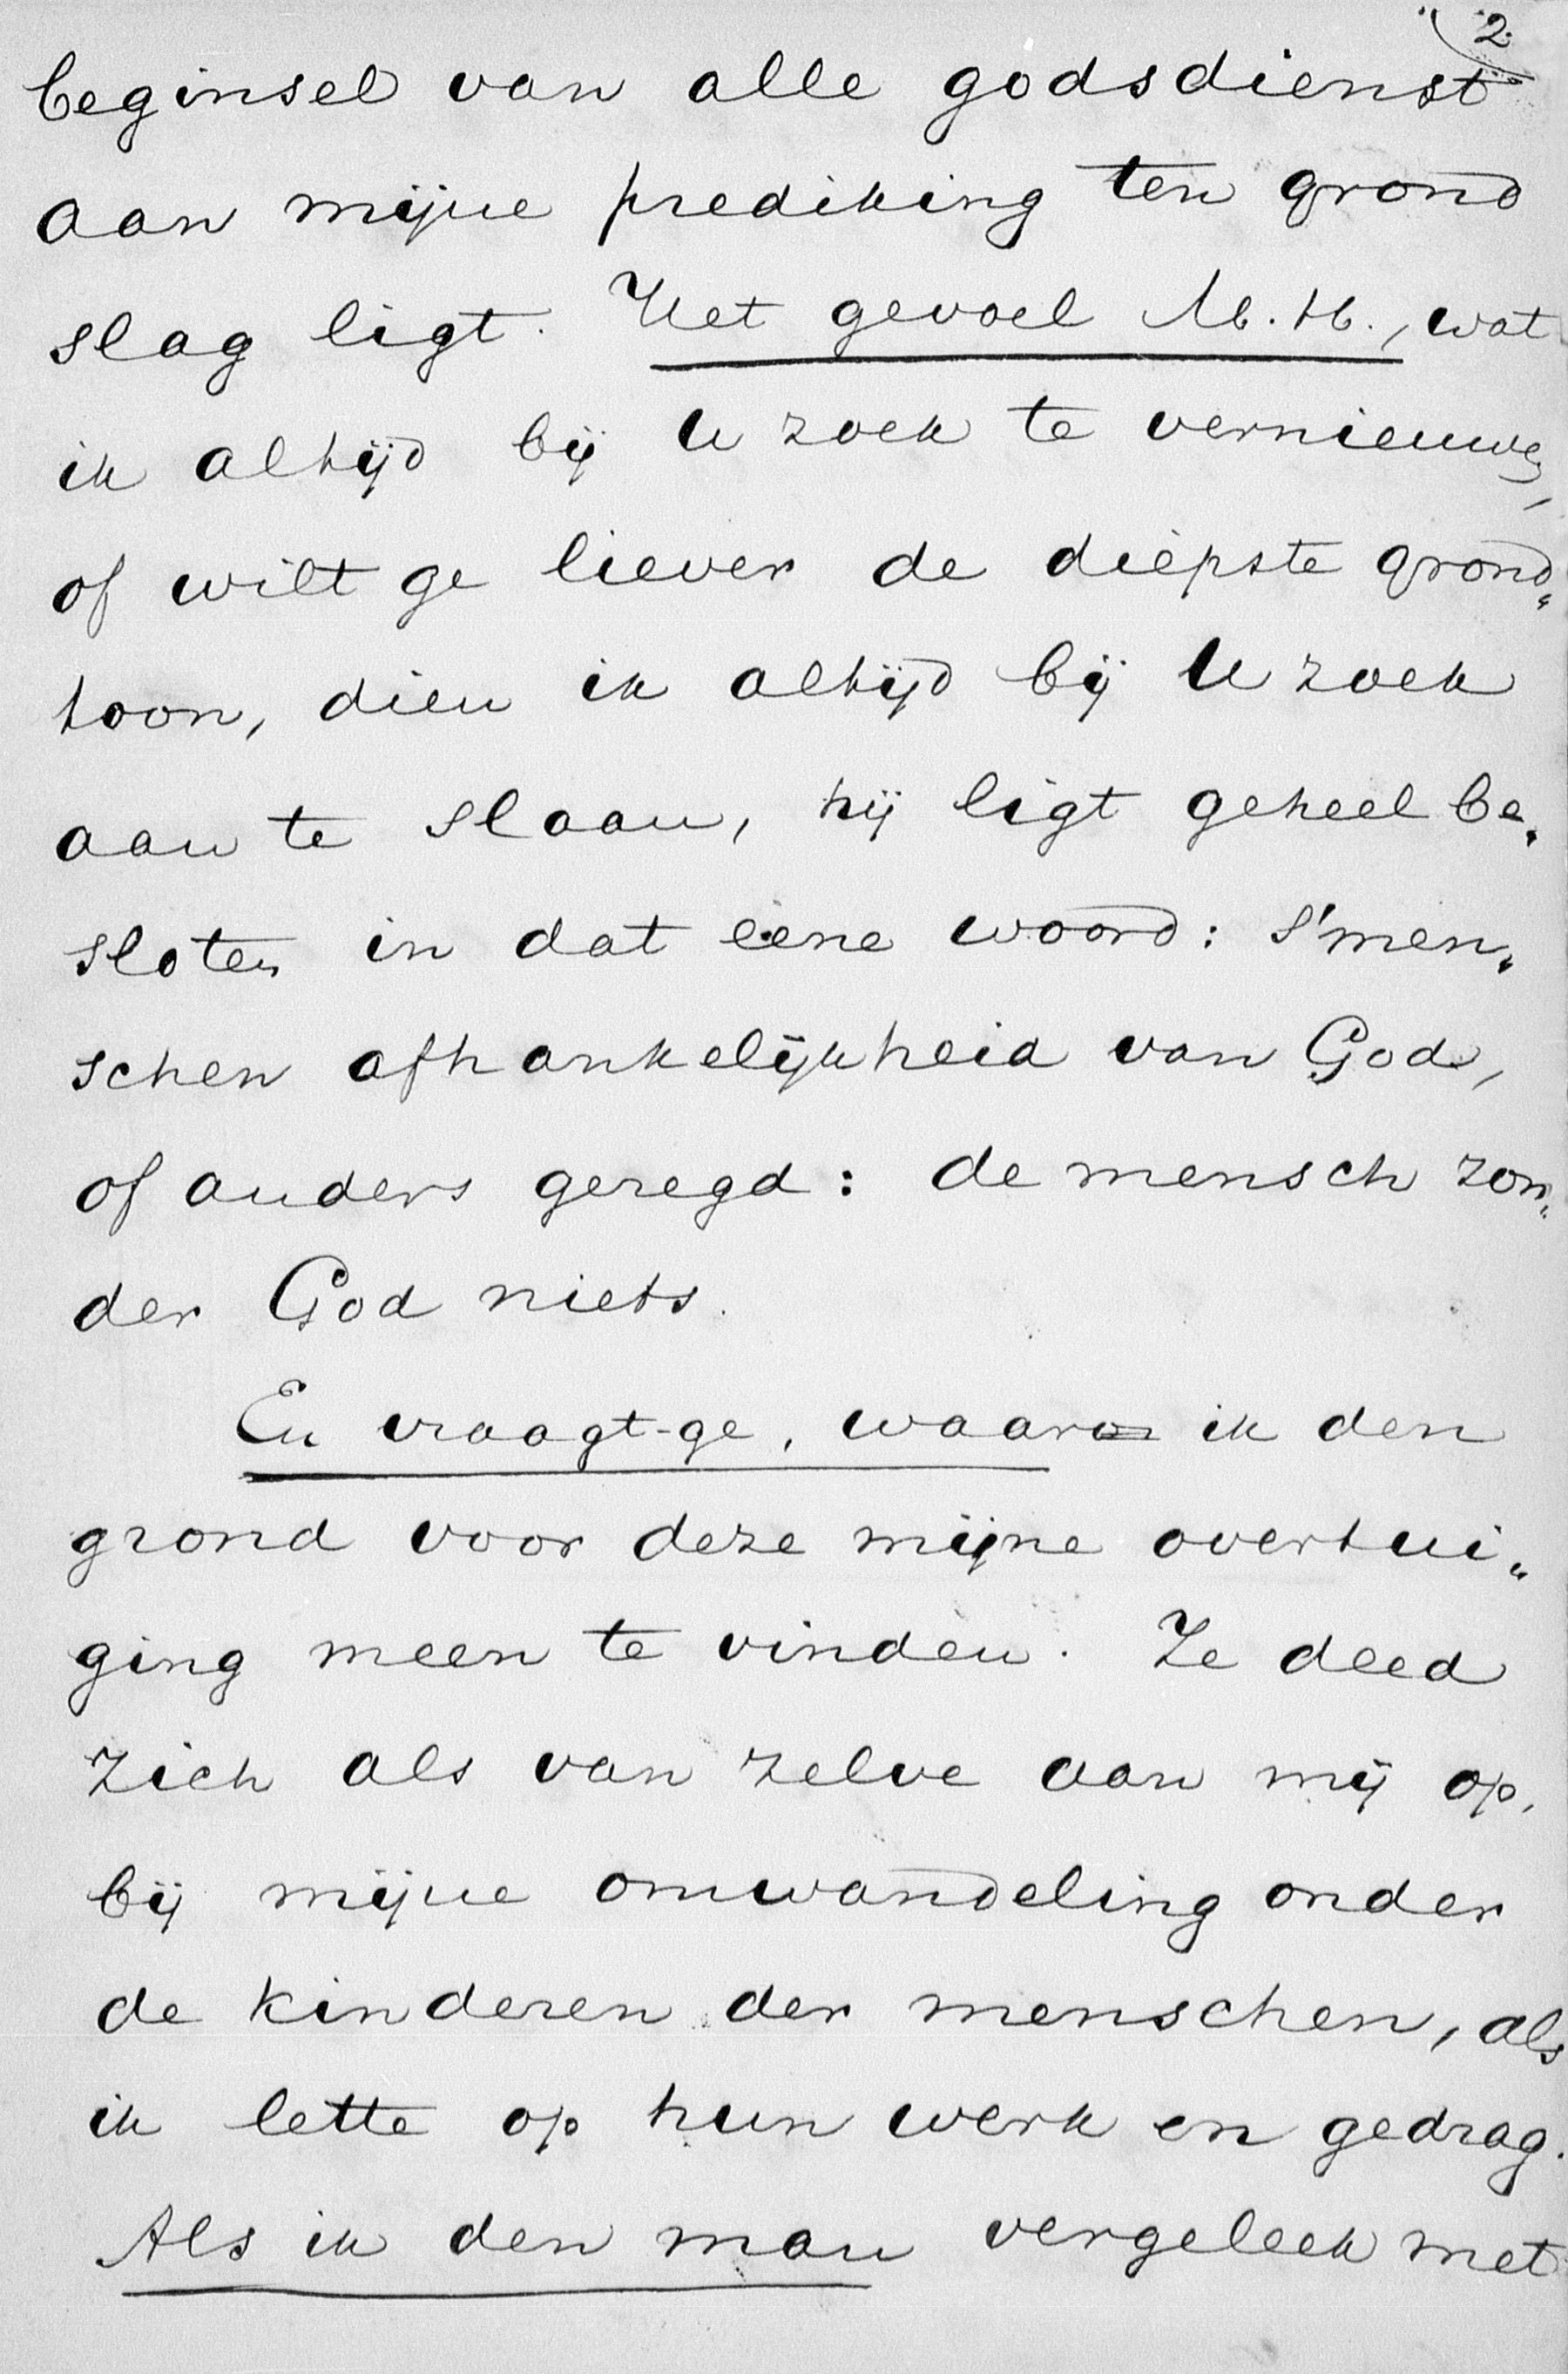 2.
beginsel van alle godsdienst
aan mijne prediking ten grond
slag ligt. Het gevoel M. H., wat
ik altijd bij U zoek te vernieuwen,
of wilt ge liever de diepste grond„
toon, dien ik altijd bij U zoek
aan te slaan, hij ligt geheel be„
sloten in dat eene woord: s'men„
schen afhankelijkheid van God,
of anders gezegd: de mensch zon„
der God niets.
En vraagt-ge, waarom ik den
grond voor deze mijne overtui„
ging meen te vinden. Ze deed
zich als van zelve aan mij op,
bij mijne omwandeling onder
de kinderen der menschen, als
ik lette op hun werk en gedrag.
Als ik den man vergeleek met